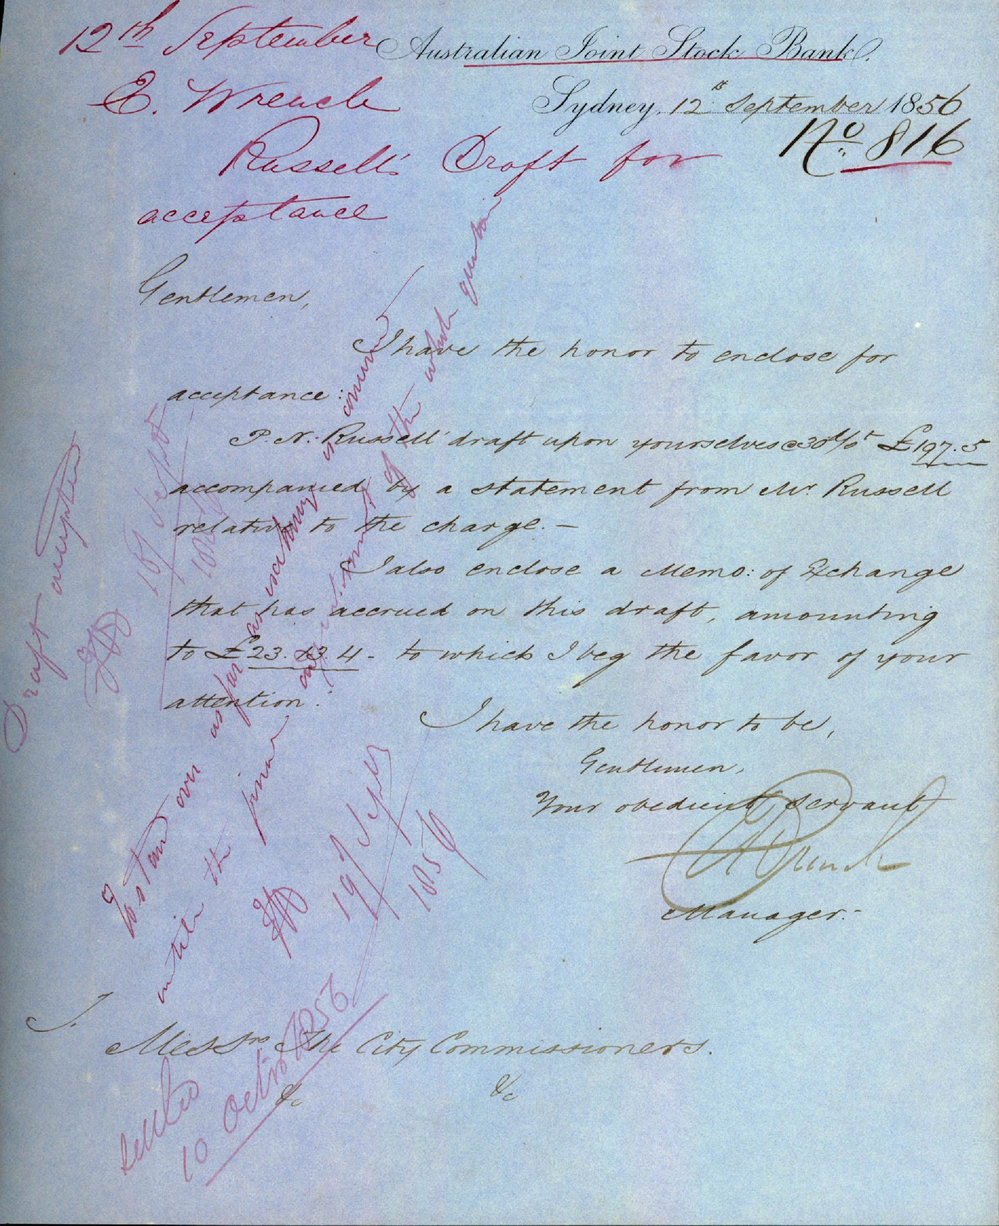 12th September
E. Wrench
Russell's Draft for
acceptance
Australian Joint Stock Bank.
Sydney, 12th September 1856
No 816
Gentlemen,
I have the honor to enclose for
acceptance:
P. N. Russell draft upon yourselves @ 30 d/st £197. 5
accompanied by a statement from Mr Russell
relative to the charge. —
I also enclose a Memo: of Exchange
that has accrued on this draft, amounting
to £23. 4 - to which I beg the favor of your
attention.
I have the honor to be,
Gentlemen,
Your obedient servant
Wrench
Manager.-
To
Messrs The City Commissioners.
&c &c
Draft accepted
18/ Septr
1856
To stand over as far as exchange is concerned
until the final of the whole question
19/ Septr
1856
10 Octr 1856